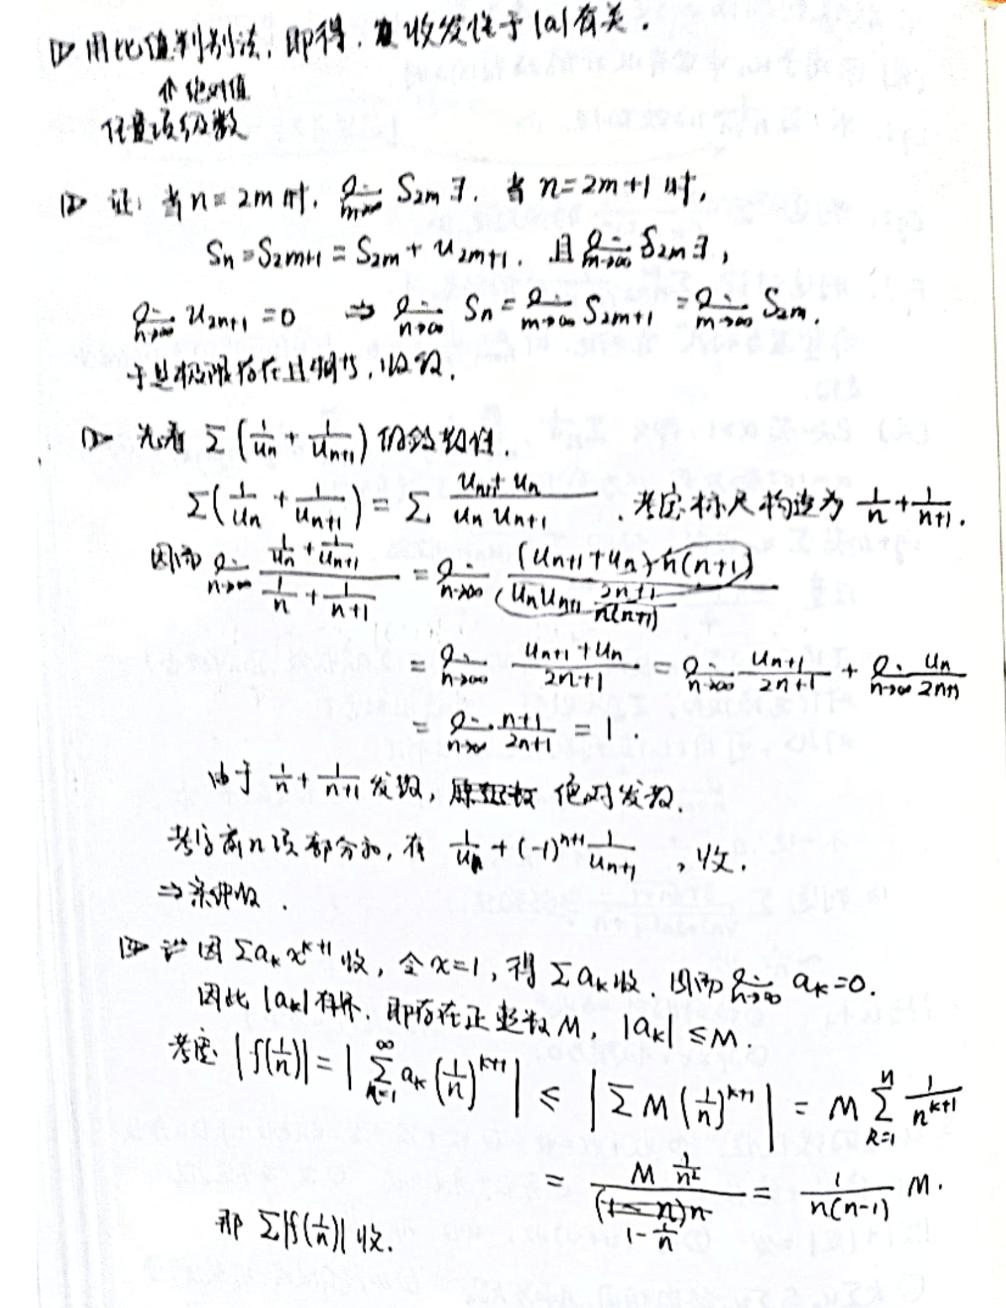 ▷ 用比值判别法,即得,收发性于|a|有关.
↑ 绝对值
任意项级数
▷ 证: 当 n=2m 时, lim_{m→∞} S_{2m} ∃. 当 n=2m+1 时,
S_n=S_{2m+1}=S_{2m}+u_{2m+1}. 且 lim_{m→∞} S_{2m} ∃,
lim_{n→∞} u_{2n+1}=0 ⇒ lim_{n→∞} S_n = lim_{m→∞} S_{2m+1} = lim_{m→∞} S_{2m}.
于是极限存在且相等,收敛.
▷ 先看 Σ(1/u_n + 1/u_{n+1}) 的敛散性.
Σ(1/u_n + 1/u_{n+1}) = Σ (u_{n+1}+u_n)/(u_n u_{n+1}). 考虑标尺构造为 1/n + 1/(n+1).
因而 lim_{n→∞} (1/u_n + 1/u_{n+1})/(1/n + 1/(n+1)) = lim_{n→∞} (u_{n+1}+u_n) n(n+1)/(u_n u_{n+1} (2n+1)/(n(n+1)))
= lim_{n→∞} (u_{n+1}+u_n)/(2n+1) = lim_{n→∞} u_{n+1}/(2n+1) + lim_{n→∞} u_n/(2n+1)
= lim_{n→∞} (n+1)/(2n+1) = 1.
由于 1/n + 1/(n+1) 发散, 绝对发散.
考虑前n项部分和,有 1/u_n + (-1)^{n+1} 1/u_{n+1}, 收.
⇒ 条件收.
▷ 证 因 Σa_k x^{k+1} 收, 令 x=1, 得 Σa_k 收. 因而 lim_{n→∞} a_k=0.
因此 |a_k| 有界. 即存在正整数 M, |a_k| ≤ M.
考虑 |f(1/n)| = |Σ_{k=1}^{∞} a_k (1/n)^{k+1}| ≤ |Σ M (1/n)^{k+1}| = M Σ_{k=1}^{n} 1/n^{k+1}
= (M 1/n²)/(1-1/n) = 1/(n(n-1)) M.
那 Σ|f(1/n)| 收.